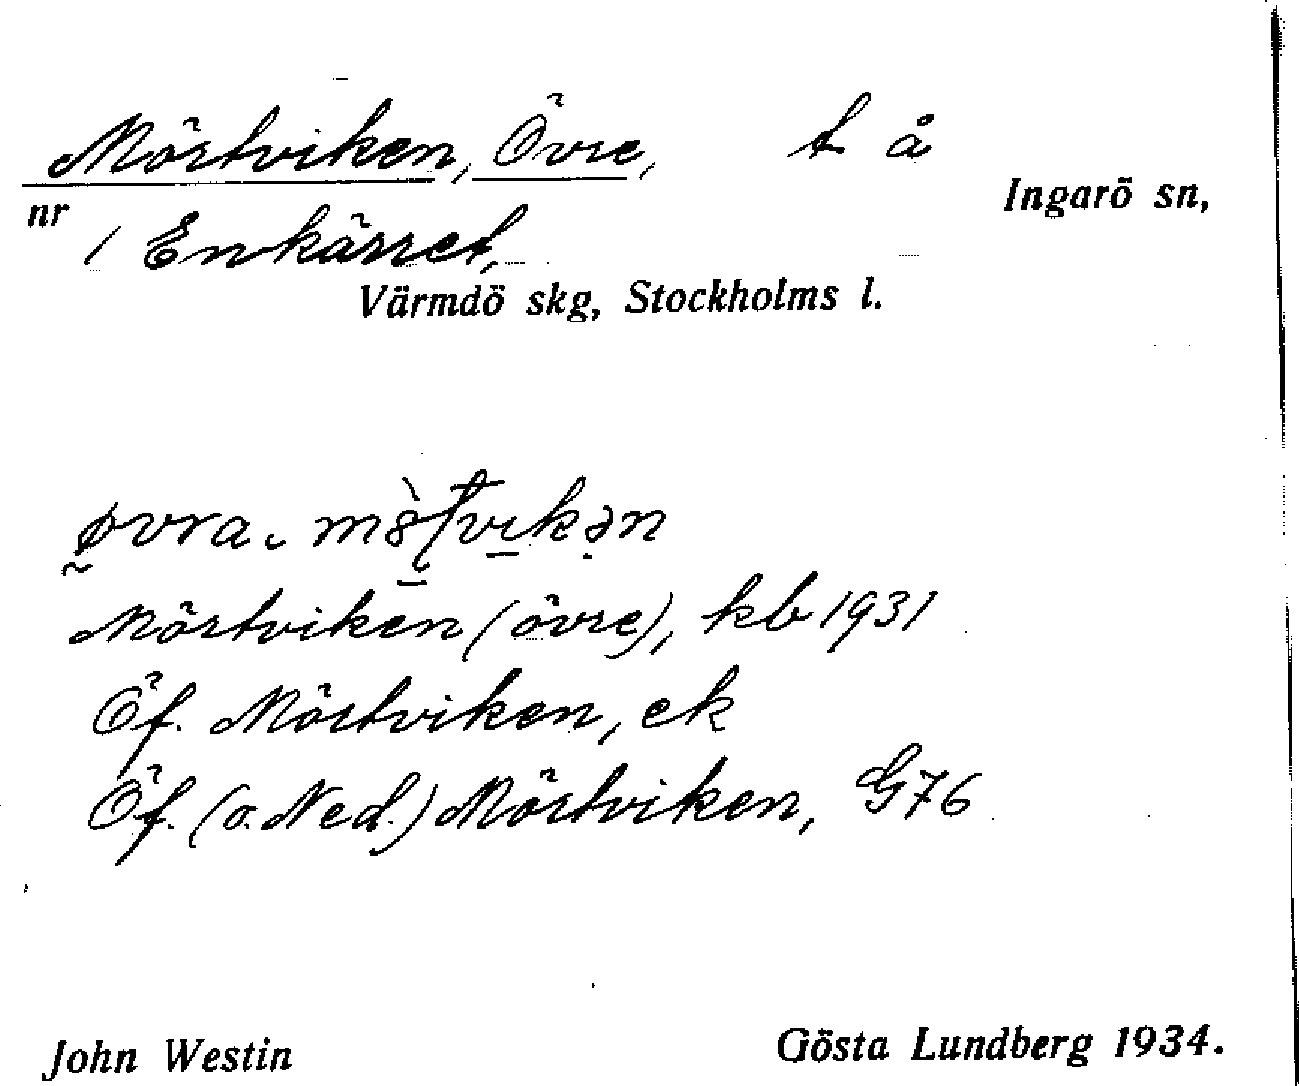 Mörtviken, Övre, t å
Ingarö sn,
nr
/ Enkärret,
Värmdö skg, Stockholms l.
Mörtviken (övre), kb 1931
Öf. Mörtviken, ek
Öf. (o. Ned.) Mörtviken, G76
John Westin Gösta Lundberg 1934.